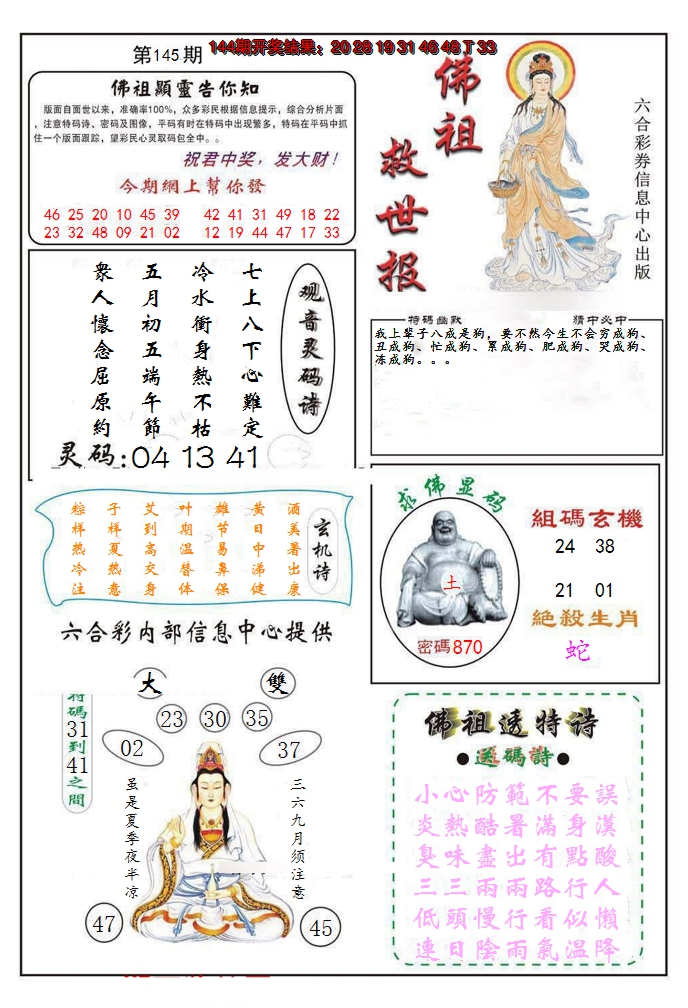 第145期
144期开奖结果：20 28 19 31 46 48 T 33
佛祖顯靈告你知
版面自面世以来，准确率100%，众多彩民根据信息提示，综合分析片面
，注意特码诗、密码及图像，平码有时在特码中出现繁多，特码在平码中抓
住一个版面跟踪，望彩民心灵取码包全中。。
祝君中奖，发大财！
今期網上幫你發
46 25 20 10 45 39 42 41 31 49 18 22
23 32 48 09 21 02 12 19 44 47 17 33
佛祖
救世报
六合彩券信息中心出版
观音灵码诗
七上八下心難定
冷水衝身熱不枯
五月初五端午節
衆人懷念屈原約
灵码:04 13 41
特碼幽默
猜中必中
我上辈子八成是狗，要不然今生不会穷成狗、
丑成狗、忙成狗、累成狗、肥成狗、哭成狗、
冻成狗。。。
玄机诗
酒美暑出康
黄日中涕健
雄节易鼻保
叶期温替体
艾到高交身
子样夏热意
粽样热冷注
六合彩内部信息中心提供
求佛显码
土
密碼870
組碼玄機
24 38
21 01
絶殺生肖
蛇
大
雙
特碼31到41之間
23
30
35
02
37
三六九月须注意
虽是夏季夜半凉
47
45
佛祖透特诗
●送碼詩●
小心防範不要誤
炎熱酷暑滿身漢
臭味盡出有點酸
三三兩兩路行人
低頭慢行看似懶
連日陰雨氣溫降